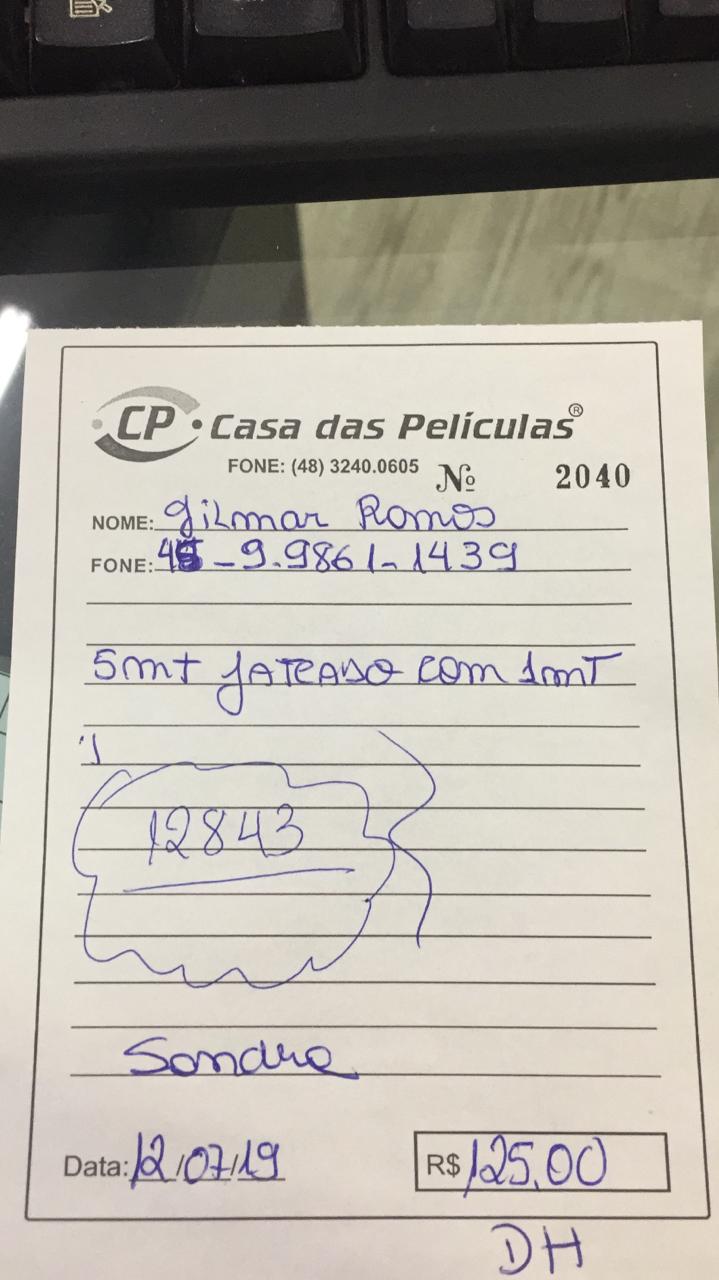 CP • Casa das Películas®
FONE: (48) 3240.0605 Nº 2040
NOME: Gilmar Ramos
FONE: 48 - 9.9861-1439
5mt JATEADO com 1mT
12843
Sandra
Data: 12/07/19 R$ 125,00
DH